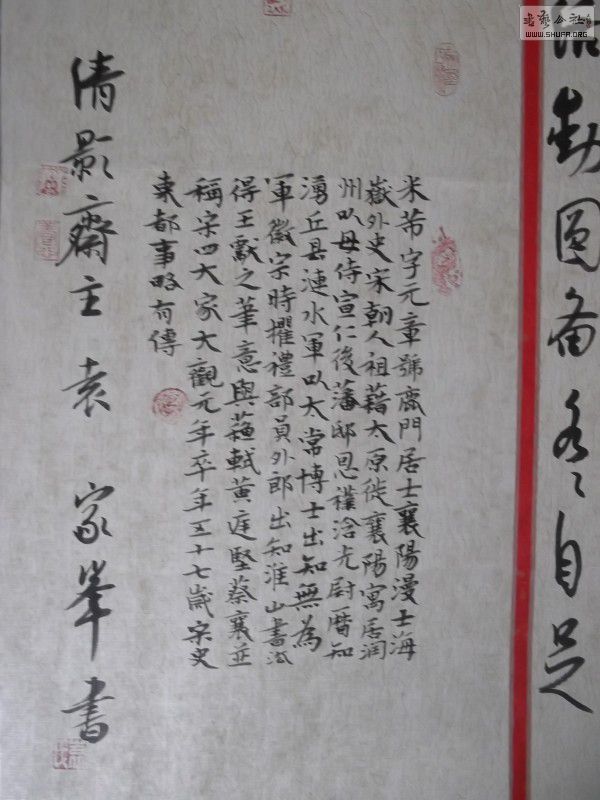 書藝公社
WWW.SHUFA.ORG
活動圓備各各自足
米芾字元章號鹿門居士襄陽漫士海
嶽外史宋朝人祖藉太原徙襄陽寓居润
州以母侍宣仁後藩邸恩補浛光尉曆知
湧丘县漣水軍以太常博士出知無為
軍徽宗時擢禮部員外郎出知淮山書法
得王獻之筆意與蘇軾黄庭堅蔡襄並
稱宋四大家大觀元年卒年五十七歲宋史
東都事略有傳
清影齋主袁家峯書